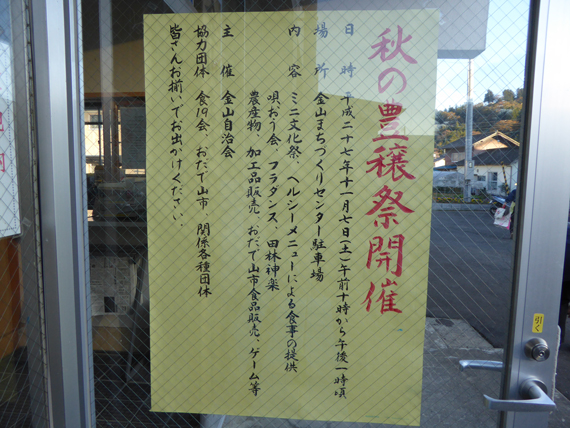 秋の豊穣祭開催
日時 平成二十七年十一月七日(土)午前十時から午後一時頃
場所 金山まちづくりセンター駐車場
内容 ミニ文化祭、ヘルシーメニューによる食事の提供
唄おう会、フラダンス、田林神楽
農産物、加工品販売、おだで山市食品販売、ゲーム等
主催 金山自治会
協力団体 食19会、おだで山市、関係各種団体
皆さんお揃いでお出かけください。
引く